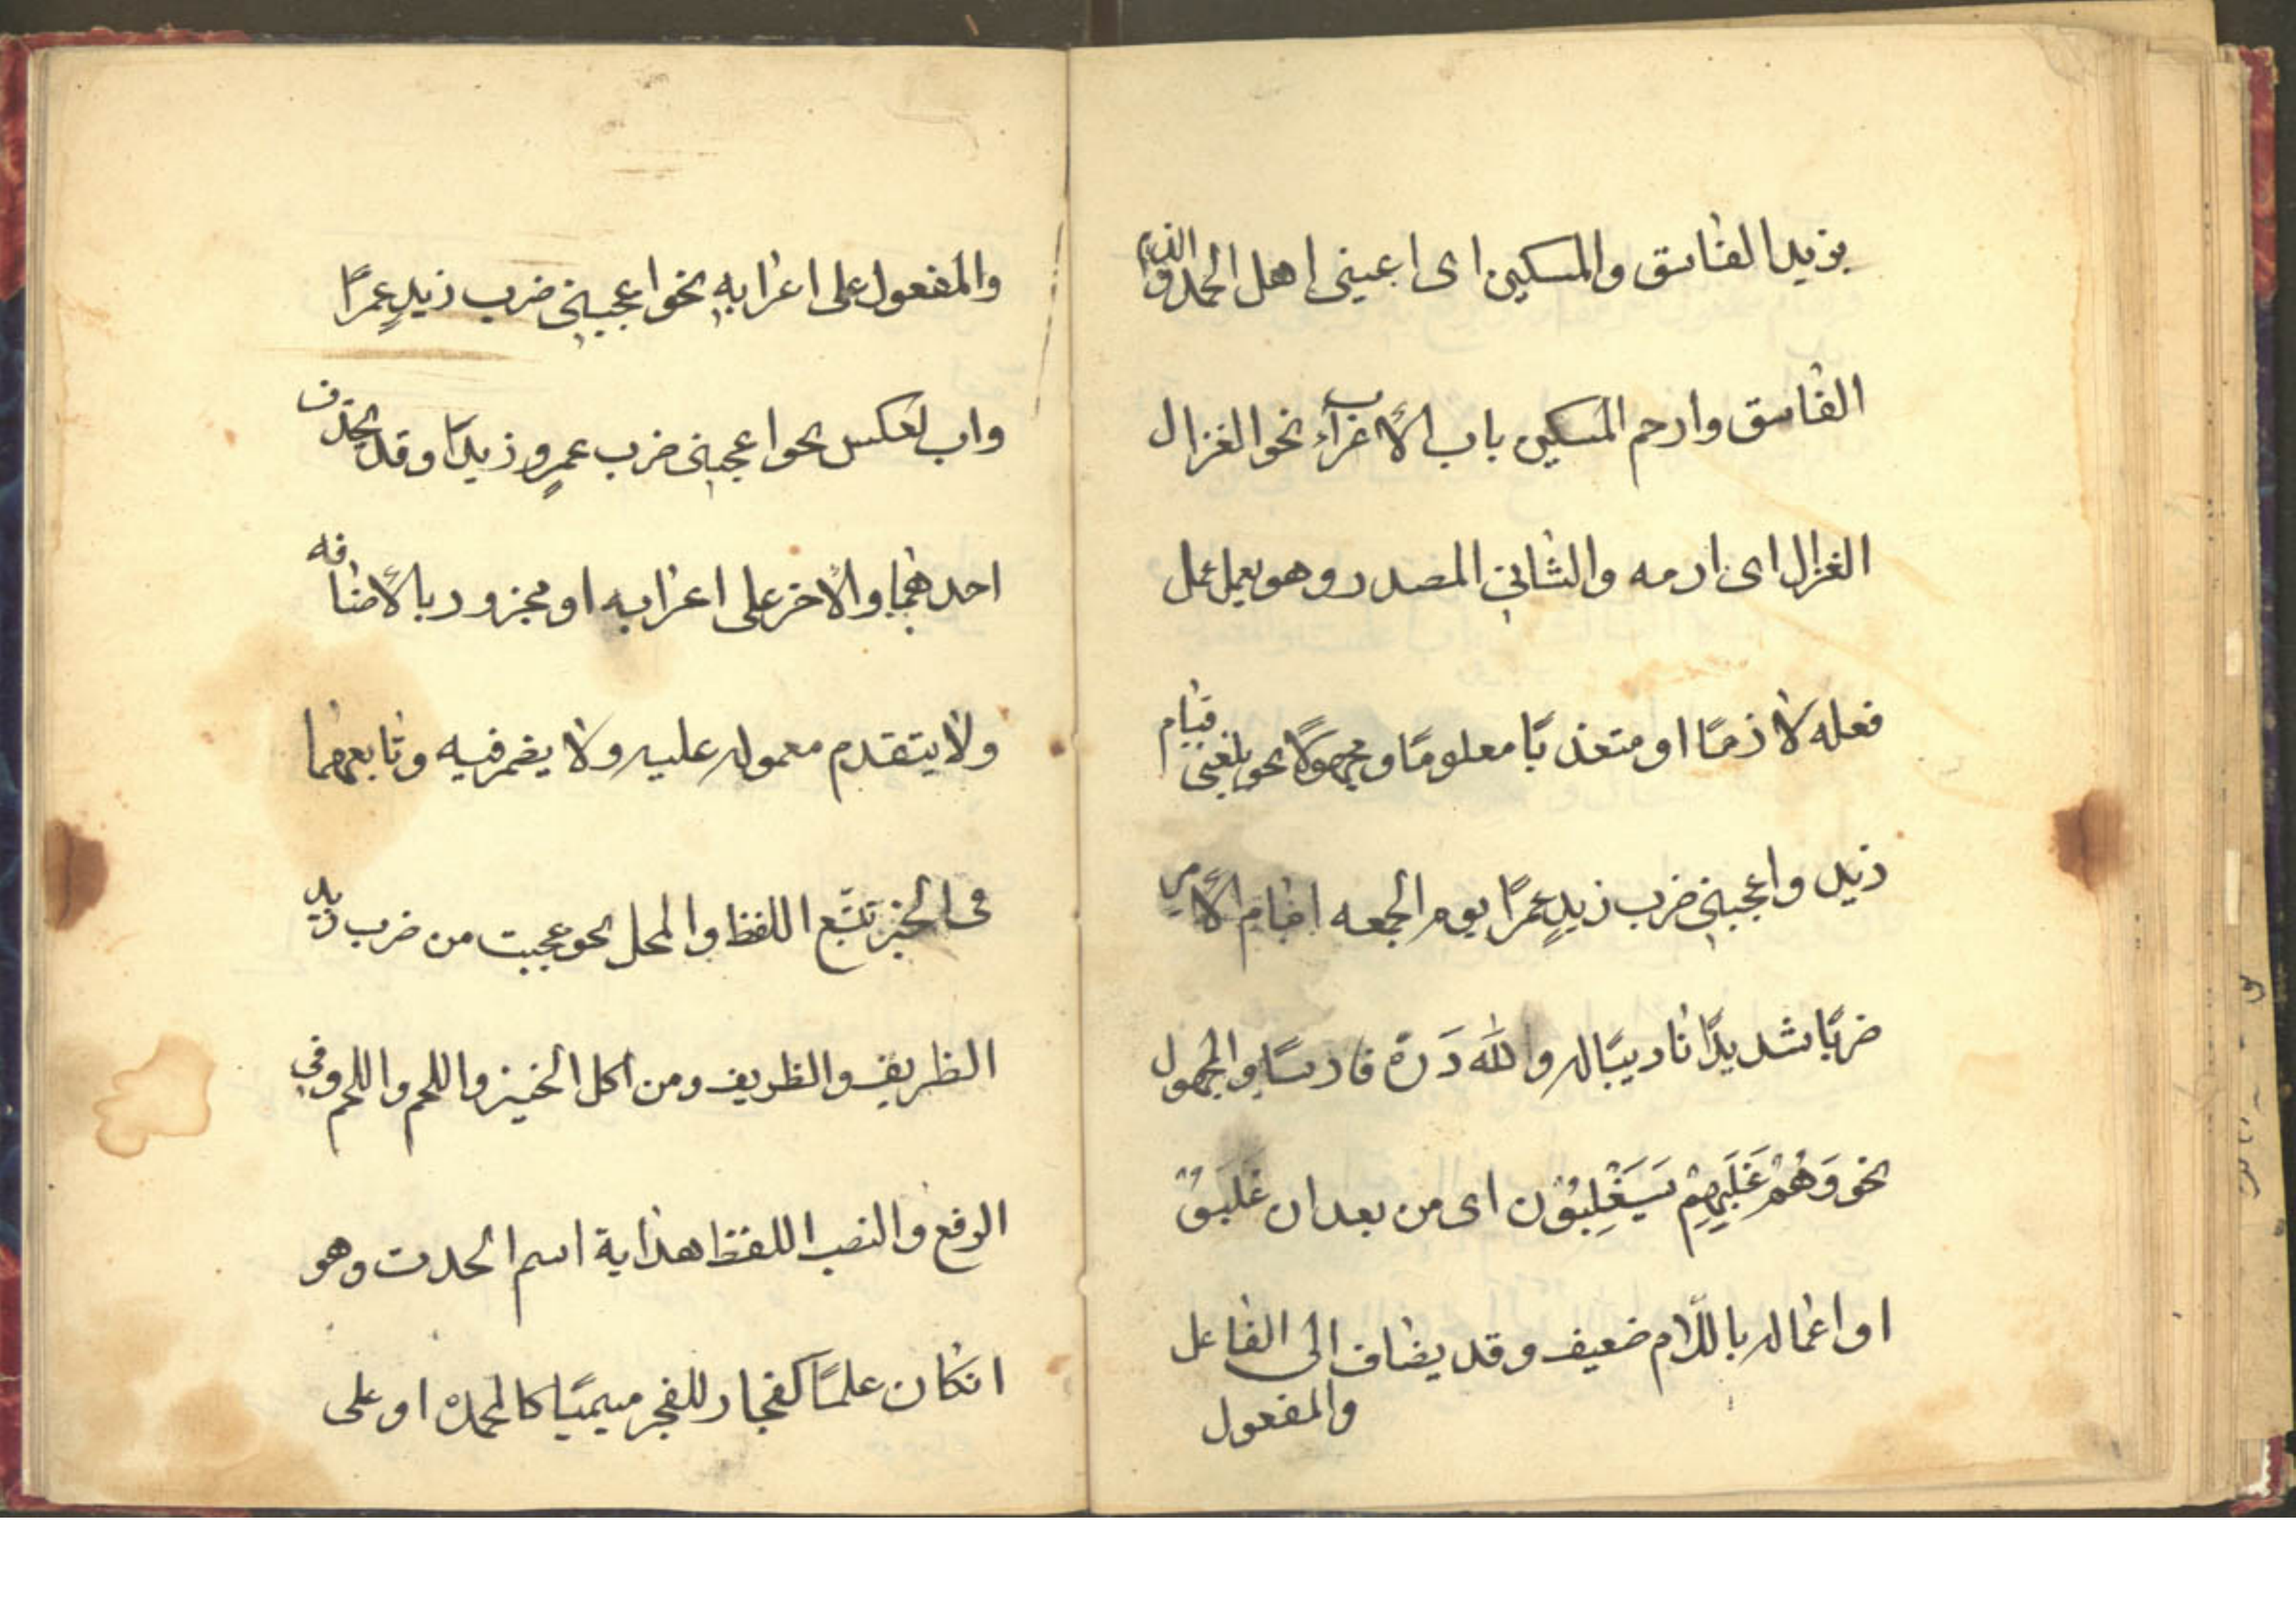 بزيد الفاسق والمسكين اى اعينى اهل الحمد واذم
الفاسق وارحم المسكين باب الأغراء نحو الغزال
الغزال اى ارمه والثانى المصدر وهو يعمل عمل
فعله لازمًا او متعديًا معلومًا ومجهولًا نحو بلغنى قيام
زيد واعجبنى ضرب زيدٍ عمرًا يوم الجمعه امام الأمير
ضربًا شديدًا تاديبًا له ولله دَرّهُ فارسًا والمجهول
نحو وَهُمْ غَلَبِهِمْ سَيَغْلِبُوْن اى من بعد ان غلبوُ
او اعماله باللّام ضعيف وقد يضاف الى الفاعل
والمفعول
والمفعول على اعرابهِ نحو اعجبنى ضرب زيدٍ عمرًا
وابلعكس نحو اعجبنى ضرب عمرٍو زيدًا وقد يحذف
احدهما والأخر على اعرابه او مجرور بالأضافه
ولا يتقدم معموله عليه ولا يضمر فيه وتابعهما
فى الخبر تتبع اللفظ والمحل نحو عجبت من ضرب زيد
الظريف والظريف ومن اكل الخبز واللحم واللحم وفى
الرفع والنصب اللفظ هداية اسم الحدث وهو
انكان علمًا كفجار للفجر ميميًا كالمحمده او على